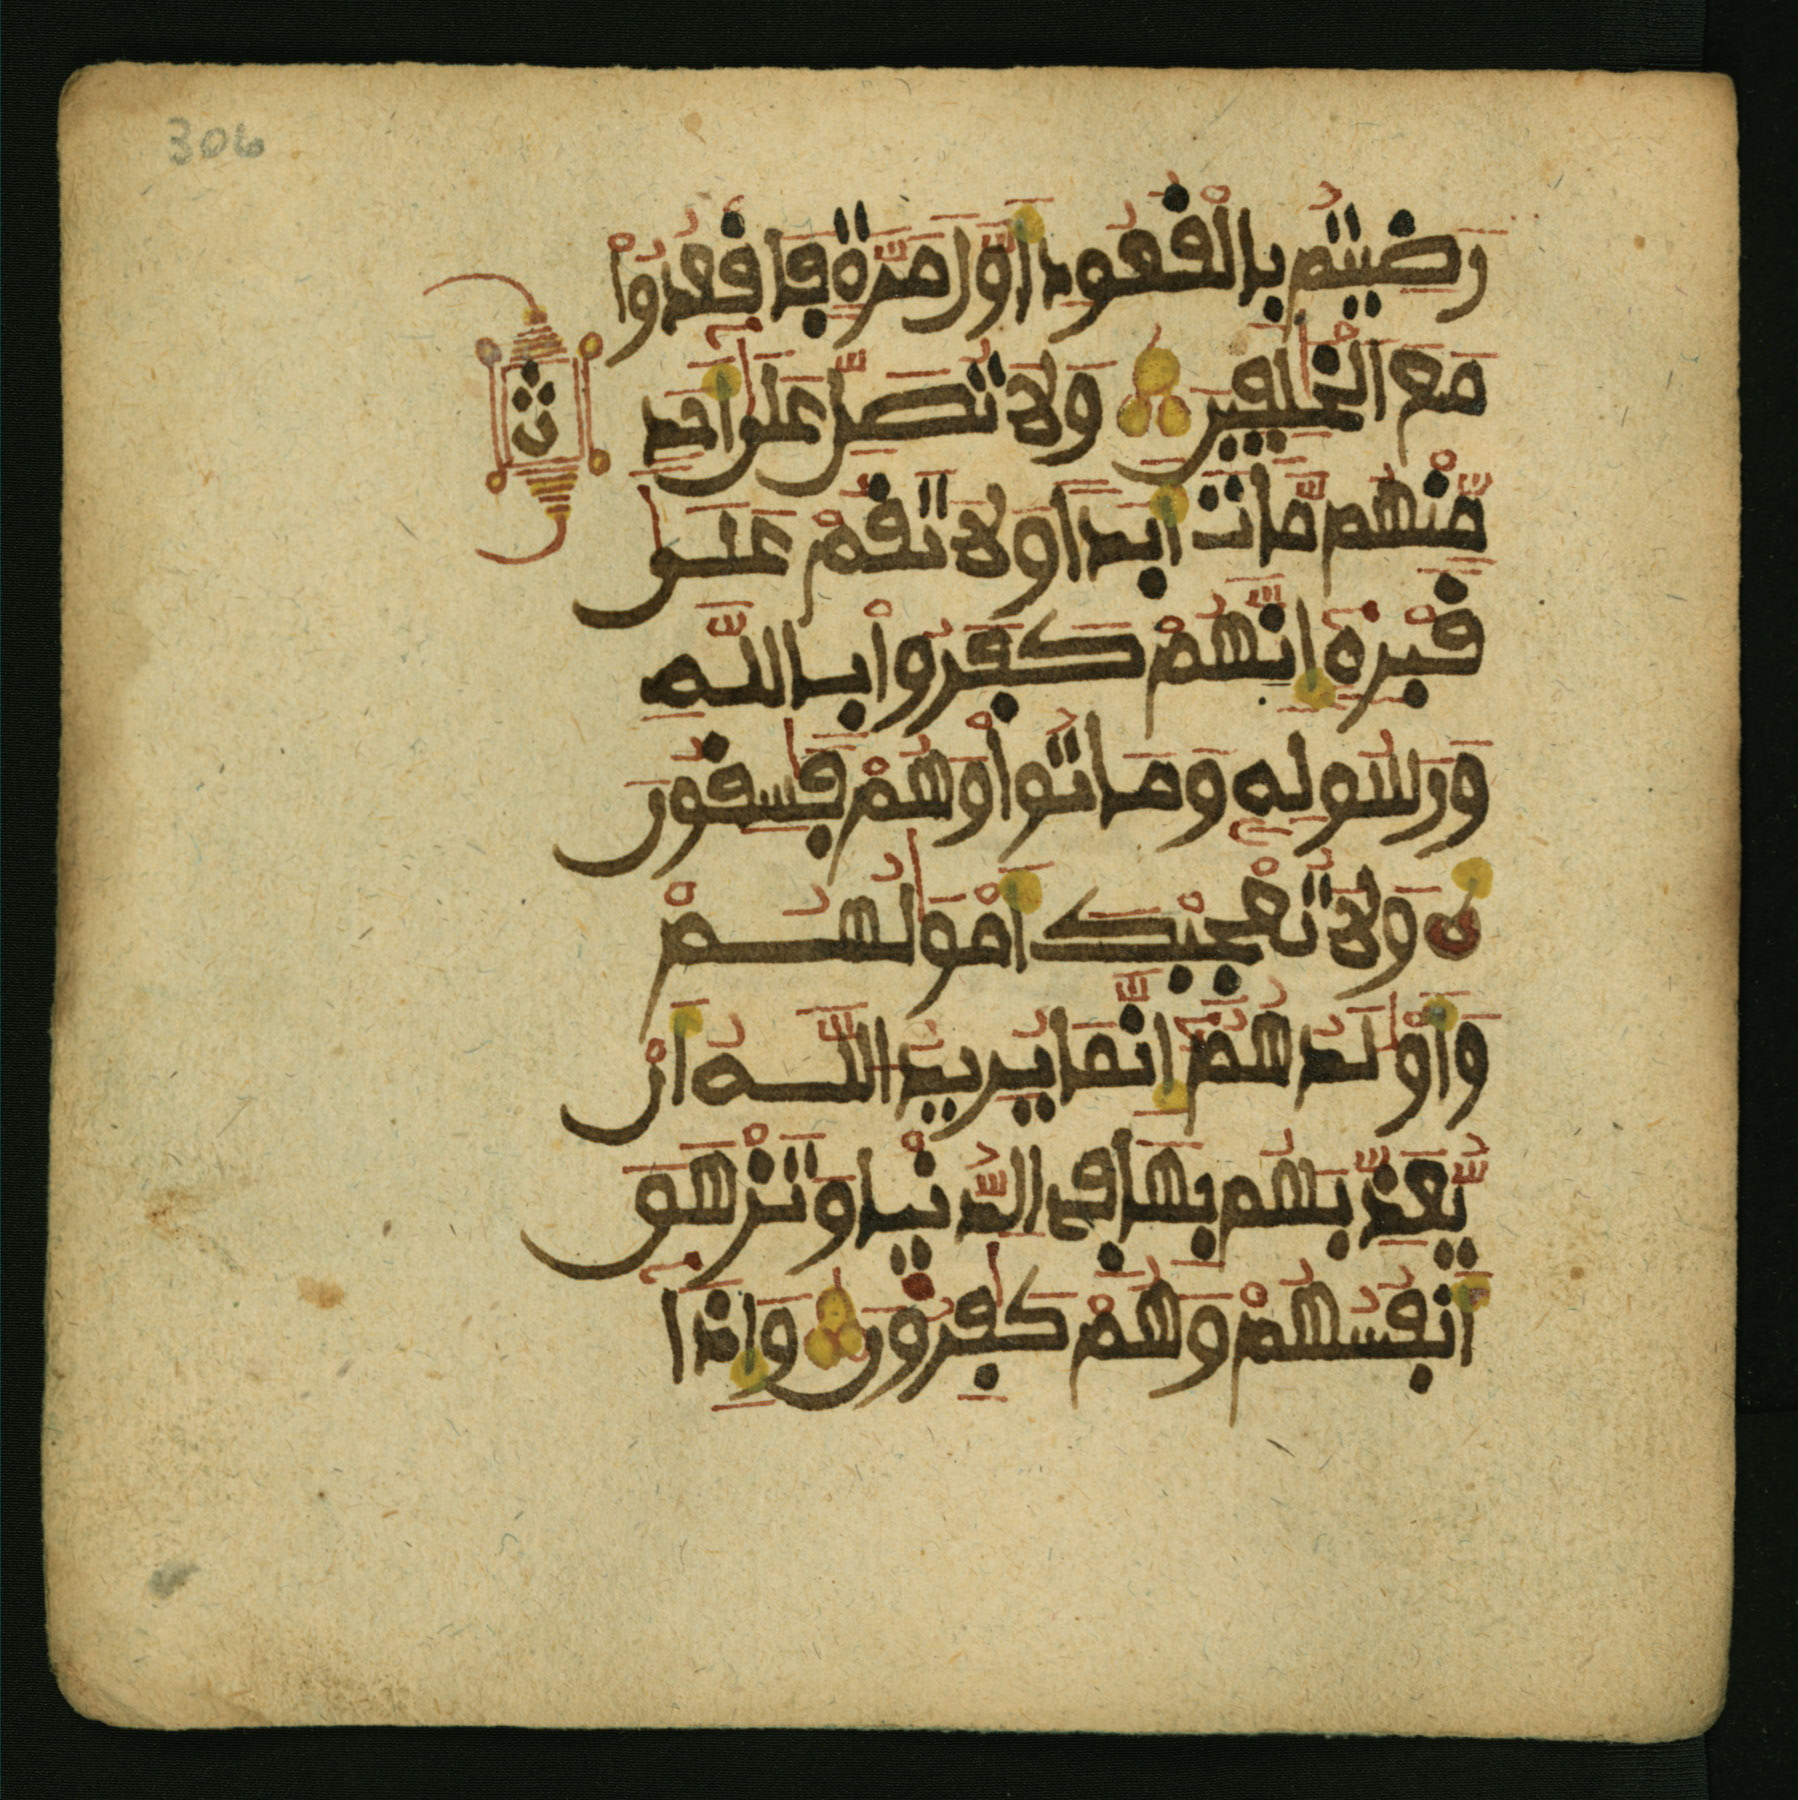 306
رَضِيتُم بِالْقُعُودِ أَوَّلَ مَرَّةٍ فَاقْعُدُواْ
مَعَ الْخَٰلِفِينَ وَلَا تُصَلِّ عَلَىٰ أَحَدٍ
ث
مِّنْهُم مَّاتَ أَبَدًا وَلَا تَقُمْ عَلَىٰ
قَبْرِهِ إِنَّهُمْ كَفَرُواْ بِاللَّهِ
وَرَسُولِهِ وَمَاتُواْ وَهُمْ فَٰسِقُونَ
ه وَلَا تُعْجِبْكَ أَمْوَٰلُهُمْ
وَأَوْلَٰدُهُمْ إِنَّمَا يُرِيدُ اللَّهُ أَن
يُّعَذِّبَهُم بِهَا فِي الدُّنْيَا وَتَزْهَقَ
أَنفُسُهُمْ وَهُمْ كَٰفِرُونَ وَإِذَا